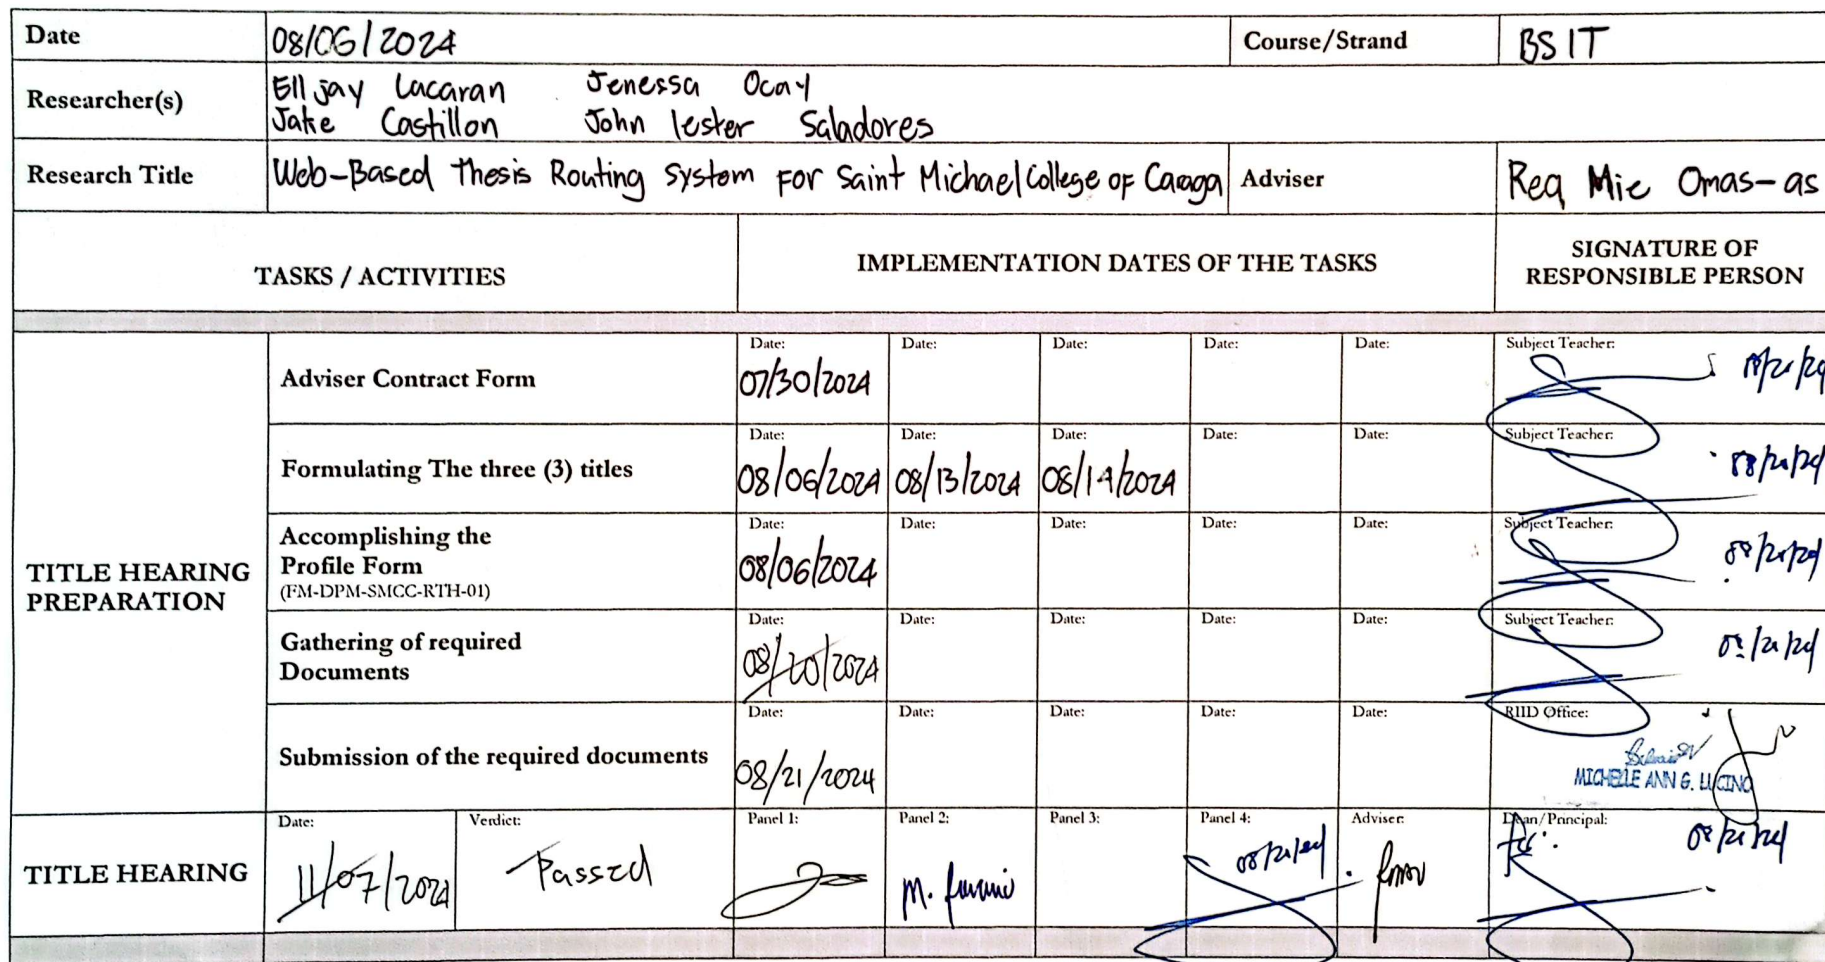 Date 08/06/2024 Course/Strand BSIT
Researcher(s) Elljay Lacaran Jenessa Ocay
Jake Castillon John lester Saladores
Research Title Web-Based Thesis Routing System For Saint Michael College of Caraga Adviser Rea Mie Omas-as
TASKS / ACTIVITIES IMPLEMENTATION DATES OF THE TASKS SIGNATURE OF
RESPONSIBLE PERSON
TITLE HEARING
PREPARATION
Adviser Contract Form
Date: Date: Date: Date: Date: Subject Teacher:
07/30/2024
Formulating The three (3) titles
Date: Date: Date: Date: Date: Subject Teacher:
08/06/2024 08/13/2024 08/14/2024
08/21/24
Accomplishing the
Profile Form
(FM-DPM-SMCC-RTH-01)
Date: Date: Date: Date: Date: Subject Teacher:
08/06/2024
08/21/24
Gathering of required
Documents
Date: Date: Date: Date: Date: Subject Teacher:
08/20/2024
Submission of the required documents
Date: Date: Date: Date: Date: RIID Office:
08/21/2024
MICHELLE ANN G. LUCINO
TITLE HEARING
Date: Verdict: Panel 1: Panel 2: Panel 3: Panel 4: Adviser: Dean/Principal:
11/07/2024 Passed 08/21/24 08/21/24